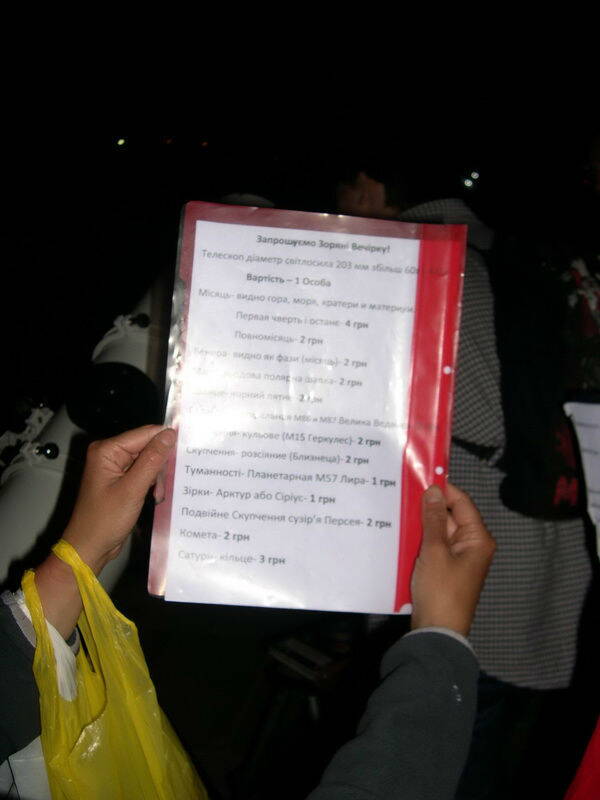 Запрошуємо Зоряні Вечірку!
Телескоп діаметр світлосила 203 мм збільш
Вартість – 1 Особа
Місяць- видно гора, моря, кратери и материки
Первая чверть і останє- 4 грн
Повномісяць- 2 грн
видно як фази (місяць)- 2 грн
полярна шапка- 2 грн
2 грн
М86 и М87 Велика
кульове (М15 Геркулес)- 2 грн
Скупчення- розсіяне (Близнеца)- 2 грн
Туманності- Планетарная М57 Лира- 1 грн
Зірки- Арктур або Сіріус- 1 грн
Подвійне Скупчення сузір'я Персея- 2 грн
Комета- 2 грн
Сатурн- кільце- 3 грн